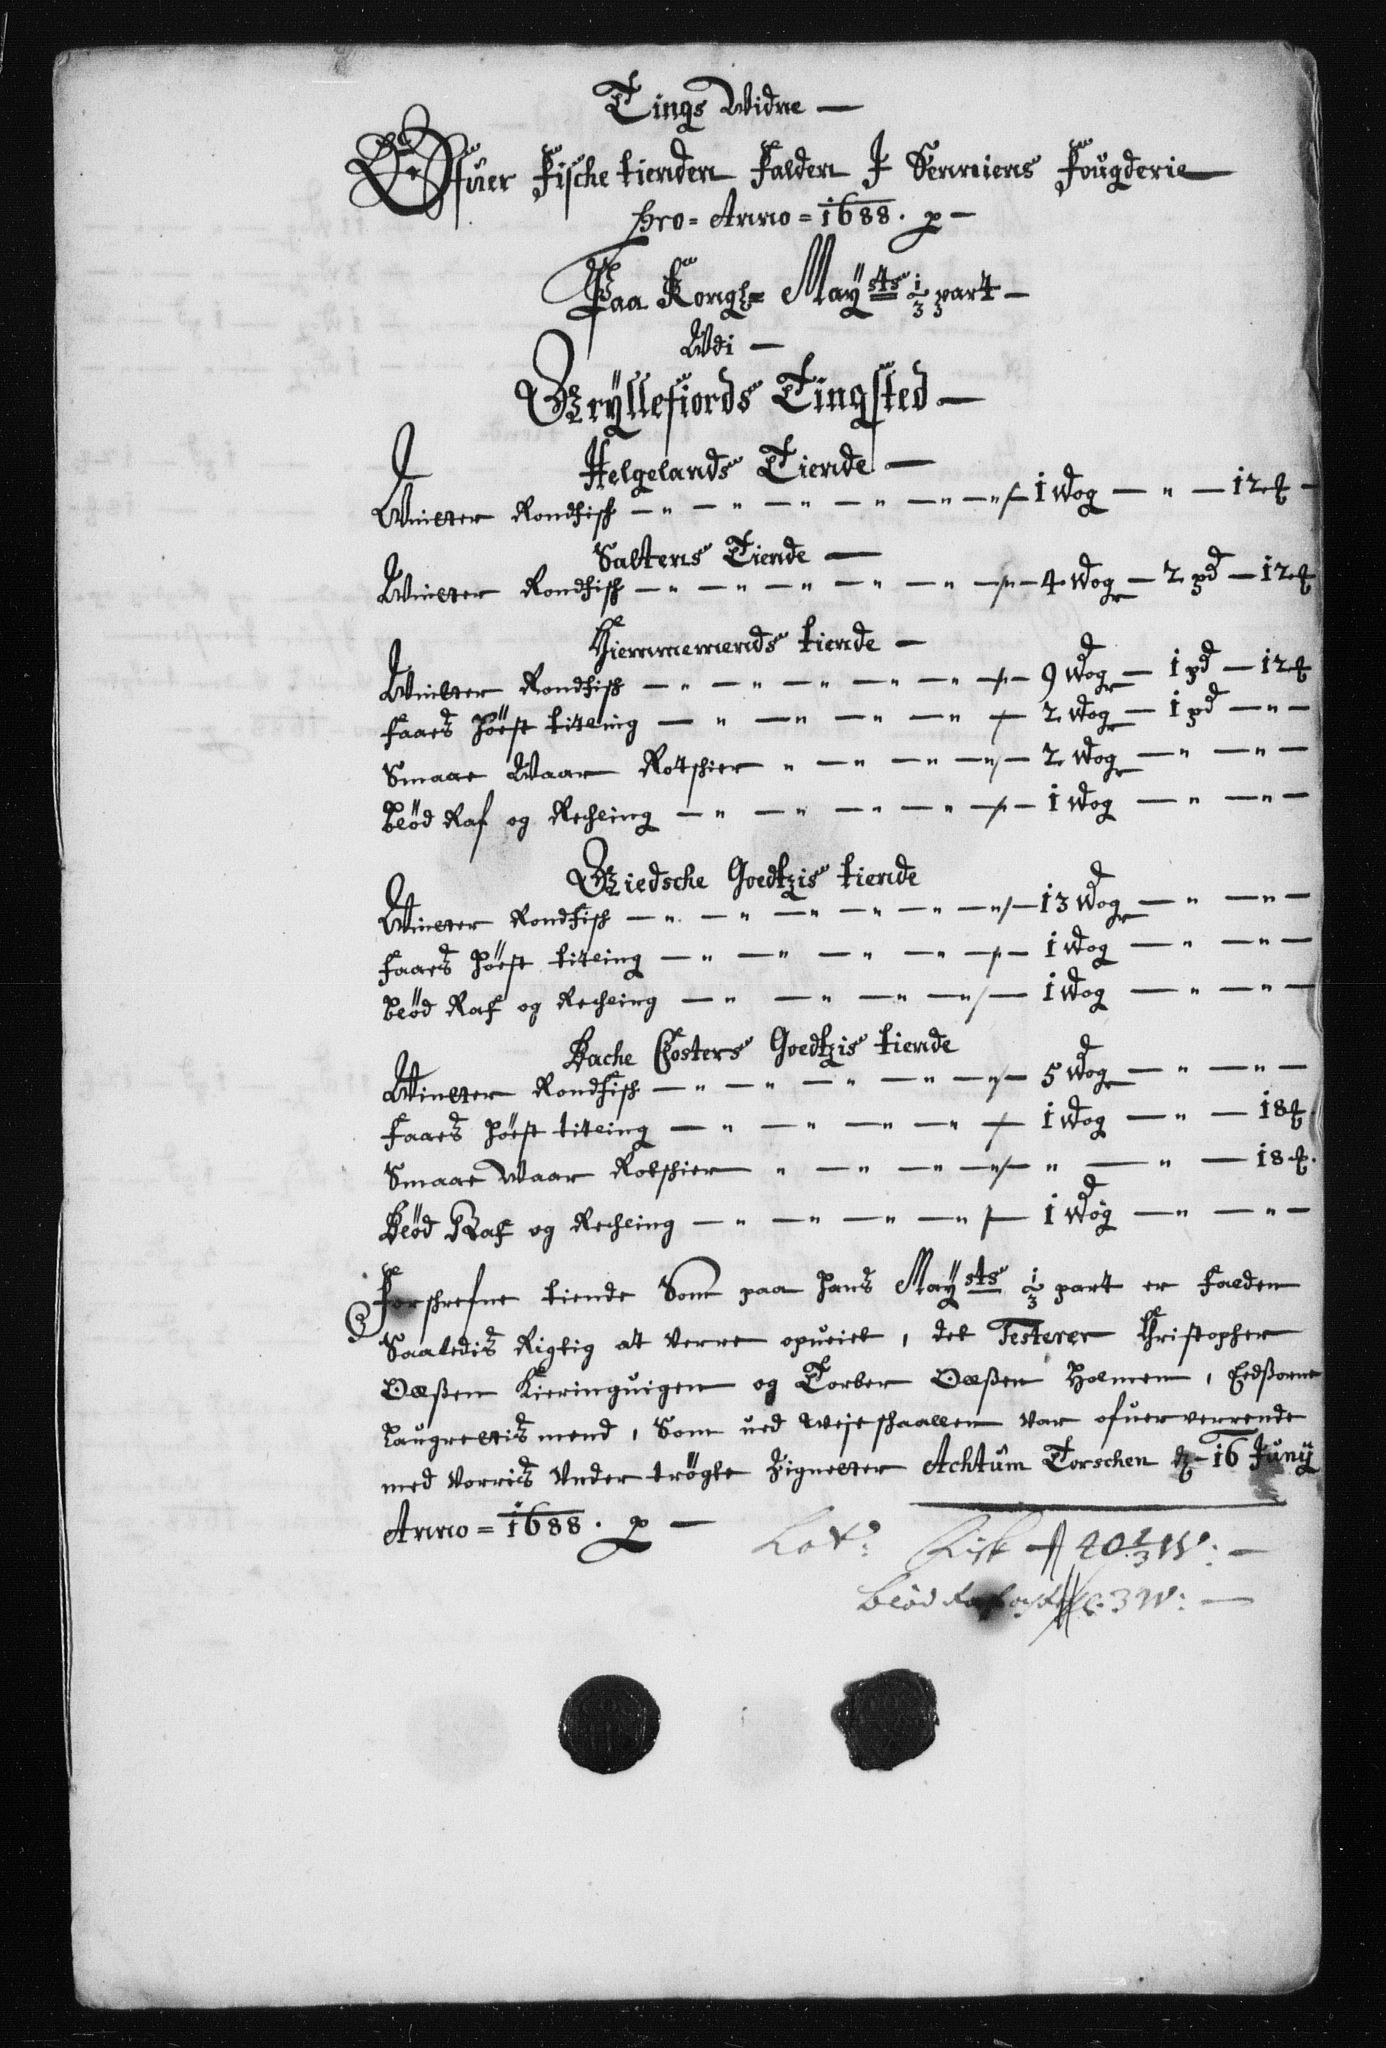 Tings Widne —
Ofuer Fische tienden Falden I Senniens Fougderie
pro = Anno = 1688 . p —
Paa Kongl= Maysts 1/3 part —
Wdi —
Gryllefiords Tingsted —
Helgelands Tiende —
Winter Rondfisch — " — " — " — " — " — 1 Wog — " — 12 ℔ —
Saltens Tiende —
Winter Rondfisch — " — " — " — " — " — 4 Wogr — 2 pd — 12 ℔
Hiemmemends tiende —
Winter Rondfisch — " — " — " — " — " — 9 Wogr — 1 pd — 12 ℔
Faaes Høest titling — " — " — " — " — 2 Wogr — 1 pd — " —
Smaae Waar Rotschier " — " — " — " — 2 Wogr — " — " —
Blød Raf og Rechling — " — " — " — " — 1 Wog — " — " —
Giedsche Goedtzis tiende
Winter Rondfisch — " — " — " — " — " — 13 Wogr — " — " —
Faaes Høest titling — " — " — " — " — 1 Wog — " — " —
Blød Raf og Rechling — " — " — " — " — 1 Wog — " — " —
Bache Closters Goedtzis tiende
Winter Rondfisch — " — " — " — " — " — 5 Wogr — " — " —
Faaes Høest titling — " — " — " — " — 1 Wog — " — 18 ℔.
Smaae Waar Rotschier " — " — " — " — " — " — 18 ℔.
Blød Raf og Rechling — " — " — " — " — 1 Wog — " — " —
Forschrefne tiende Som paa Hans Maysts 1/3 part er Falden
Saaledis Rigtig at verre opueiet, det Testerer Christopher
Oelßen Kieringuigen og Torber Oelßen Holmen, Eedßorne
Laugrettis mend, Som ued Weje schaallen var ofuerverrende
med vorris Vnder trögte Zignetter Achtum Torschen d. 16 Juny
Anno = 1688 . p —
Lat: Fisk — 40 2/3 W: —
Blød Raf 3 W: —